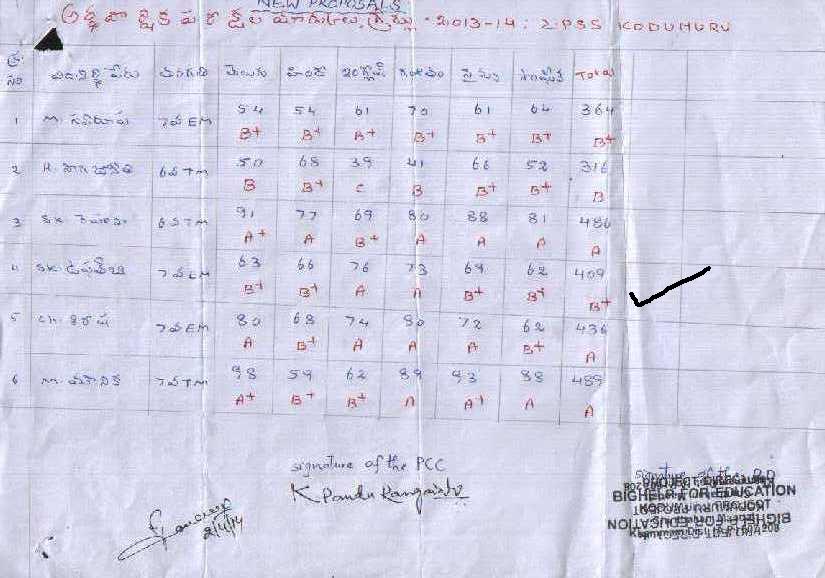 NEW PROPOSALS
అర్ధ వార్షిక పరీక్షల మార్కులు, గ్రేడ్లు - 2013-14: Z.P.S.S KODUMURU
క్ర. సం విద్యార్థి పేరు తరగతి తెలుగు హిందీ ఇంగ్లీష్ గణితం సైన్సు సాంఘీక Total
1 M. 7వ EM 54 54 61 70 61 64 364
B+ B+ B+ B+ B+ B+ B+
2 R. 6వ TM 50 68 39 41 66 52 316
B B+ C B B+ B+ B
3 SK. 6వ TM 91 77 69 80 88 81 486
A+ A B+ A A A A
4 SK. 7వ EM 63 66 76 73 69 62 409
B+ B+ A A B+ B+ B+
5 CH. శిరీష 7వ EM 80 68 74 80 72 62 436
A B+ A A A B+ A
6 M. మౌనిక 7వ TM 98 59 62 89 93 88 489
A+ B+ B+ A A+ A A
signature of the PCC signature of the P.D
K Pandu Rangaiah
2/4/14
BIGHELP FOR EDUCATION